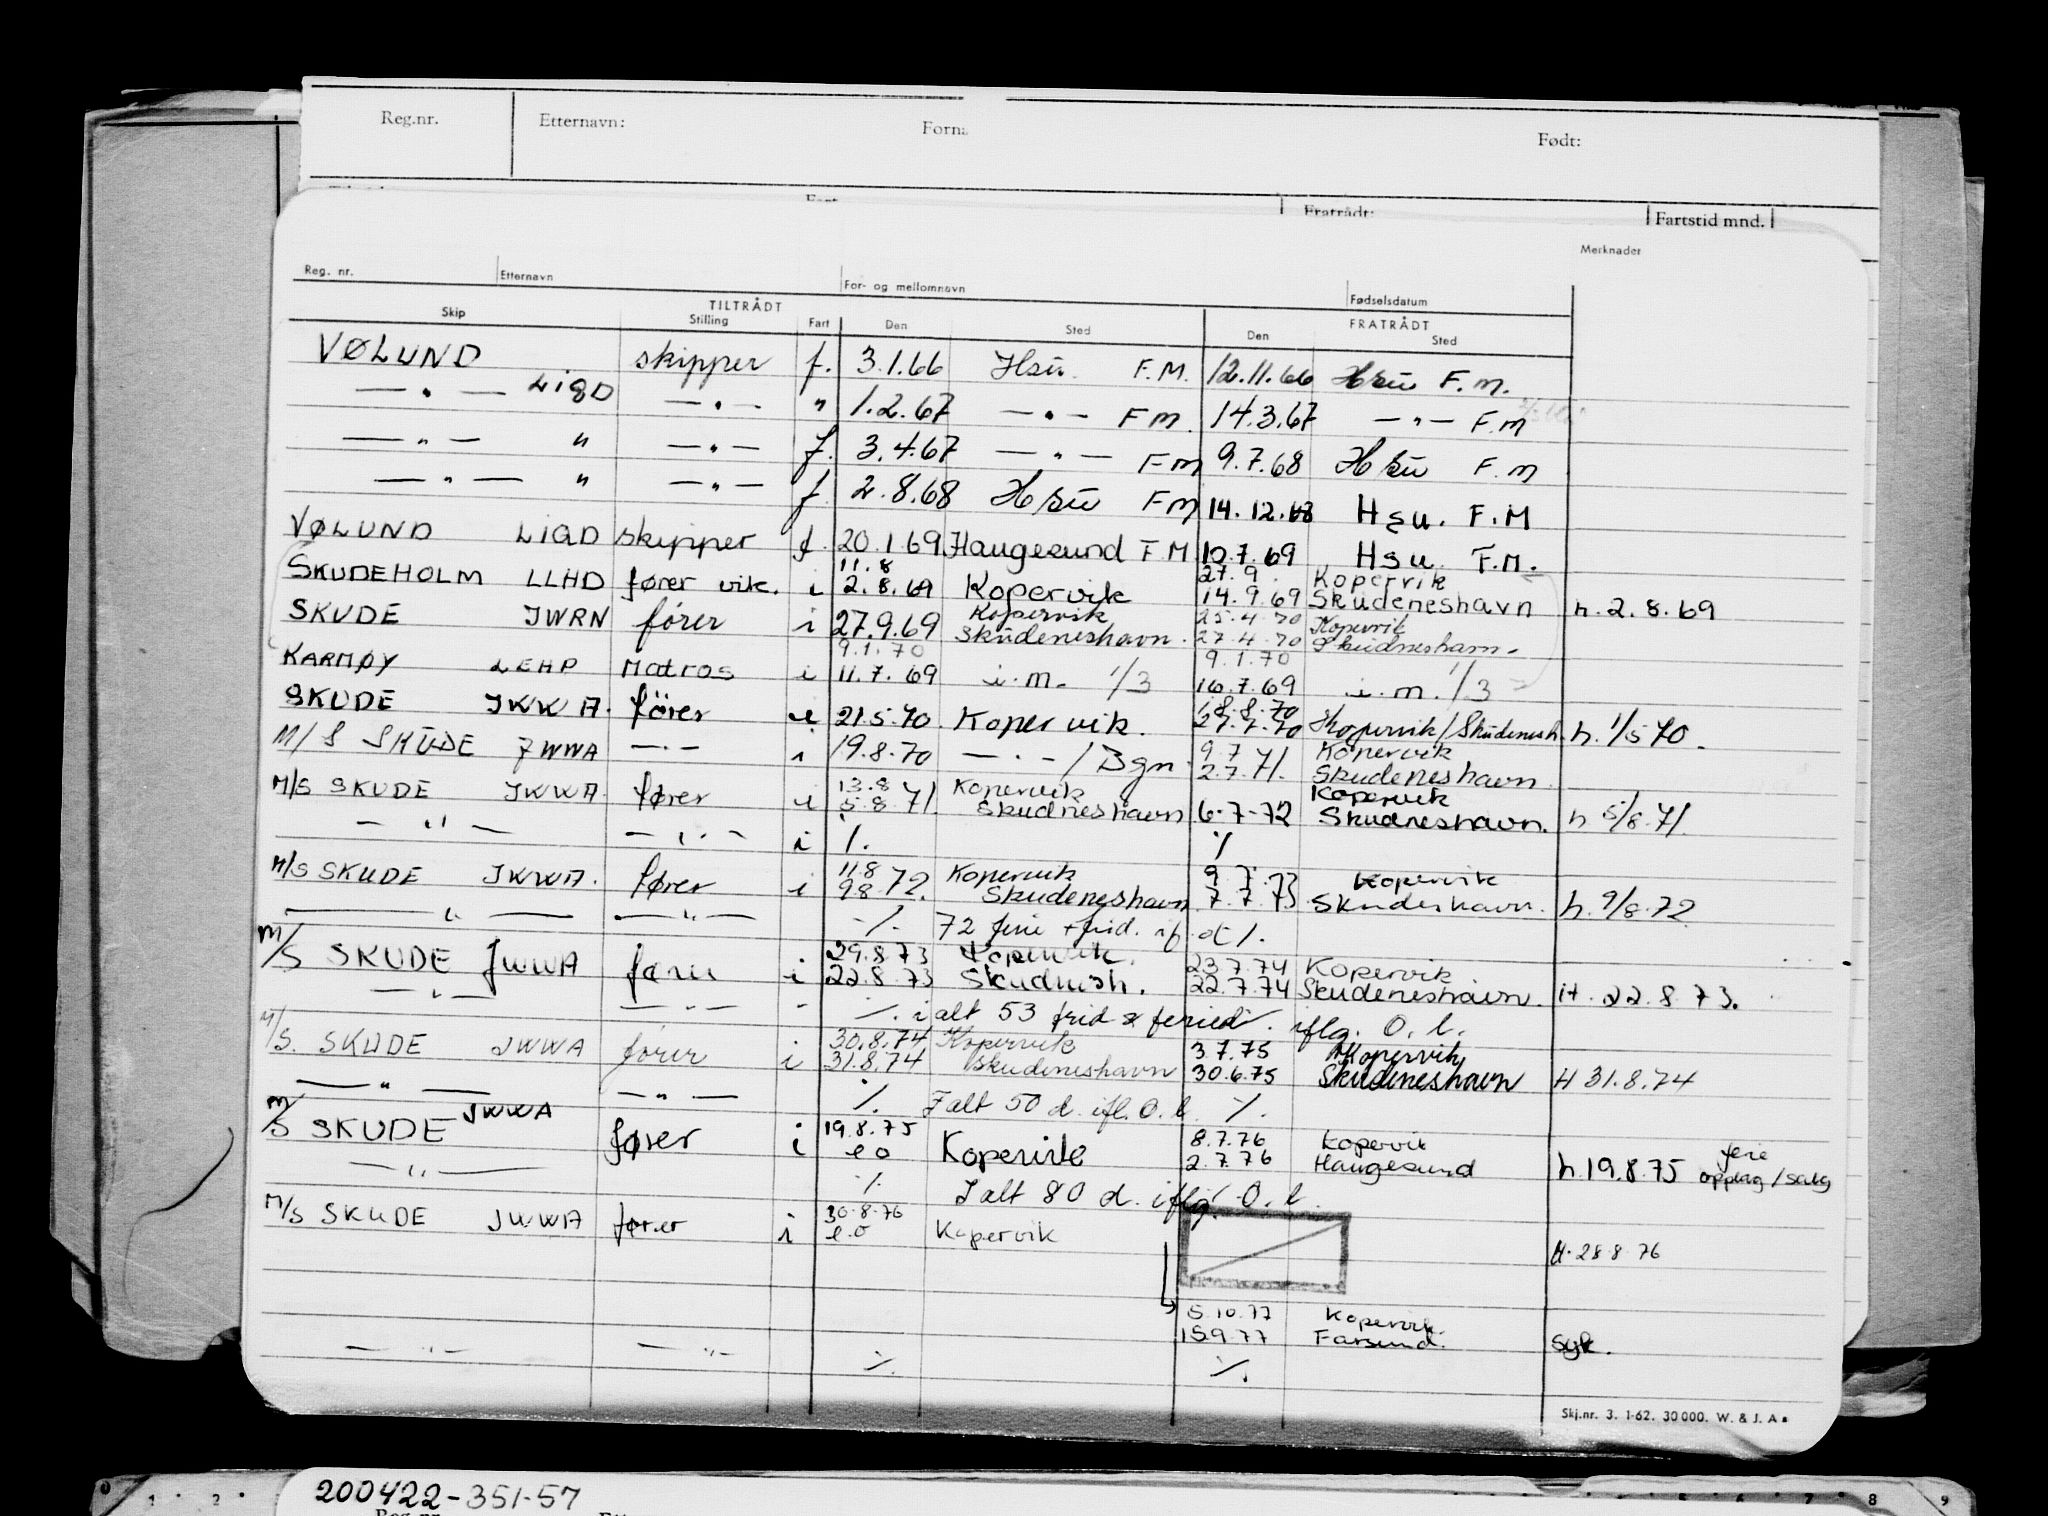 Reg.nr. Etternavn: Forna Født:
Fratrådt: Fartstid mnd.
Merknader
Reg. nr. Etternavn For- og mellomnavn Fødselsdatum
TILTRÅDT FRATRÅDT
Skip Stilling Fart Den Sted Den Sted
VØLUND skipper f. 3.1.66 Hsu. F.M. 12.11.66 Hsu F.M.
— " — LIGD — " — " 1.2.67 — " — F M. 14.3.67 — " — F.M
— " — " — " — f. 3.4.67 — " — F M 9.7.68 Hsu F.M
— " — " — " — f. 2.8.68 Hsu F M 14.12.68 Hsu. F.M
VØLUND LIGD skipper f. 20.1 69 Haugesund F M 10.7.69 Hsu F.M.
11.8 27.9. Kopervik
SKUDEHOLM LLHD fører vik. i 2.8.69 Kopervik 14.9.69 Skudeneshavn h. 2.8.69
Kopervik 25.4.70 Kopervik
SKUDE JWRN fører i 27.9.69 Skudeneshavn. 27.4.70 Skudneshavn.
9.1.70 9.1.70
KARMØY LEHP Matros i 11.7.69 i.m. 1/3 16.7.69 i.m. 1/3
18.8.70
SKUDE JWWA. fører i 21.5.70 Kopervik. 27.7.70 Kopervik/Skudenesh. h. 1/5 70.
9.7 Kopervik
M/S SKUDE JWWA — " — i 19.8.70 — " — / Bgn 2.7.71. Skudeneshavn.
13.8 Kopervik Kopervik
M/S SKUDE JWWA fører i 5.8.71. Skudneshavn 6.7.72 Skudneshavn. h 5/8.71.
— " — — " — i ./. ./.
11.8 Kopervik 9.7.73 Kopervik
M/S SKUDE JWWA. fører i 9.8.72. Skudeneshavn 7.7.73 Skudeshavn. h. 9/8.72
— " — — " — ./. 72 ferie + frid. if. ./.
29.8.73 Kopervik. 23.7.74 Kopervik
M/S SKUDE JWWA fører i 22.8.73 Skudnesh. 22.7.74 Skudeneshavn H. 22.8 73.
— " — — " — - ./. i alt 53 frid & feried ./. iflg. O.l.
30.8.74 Kopervik 3.7.75 Kopervik
M/S. SKUDE JWWA fører i 31.8.74 Skudeneshavn 30.6.75 Skudeneshavn H 31.8.74
— " — — " — ./. I alt 50 d. ifl. O.l. ./.
JWWA 19.8.75 8.7.76 Kopervik ferie
M/S SKUDE fører i e o Kopervik 2.7.76 Haugesund h. 19.8.75 opplag/salg
— " — ./. I alt 80 d. iflg. O.l.
30.8.76
M/S SKUDE JWWA fører i e o Kopervik H. 28 8 76
5.10.77 Kopervik.
15.9.77 Farsund. syk.
— " — — " — ./. ./.
Skj.nr. 3. 1-62. 30 000. W. & J. A s
200422-351-57
Reg.nr.
1 2 5 6 7 8 9